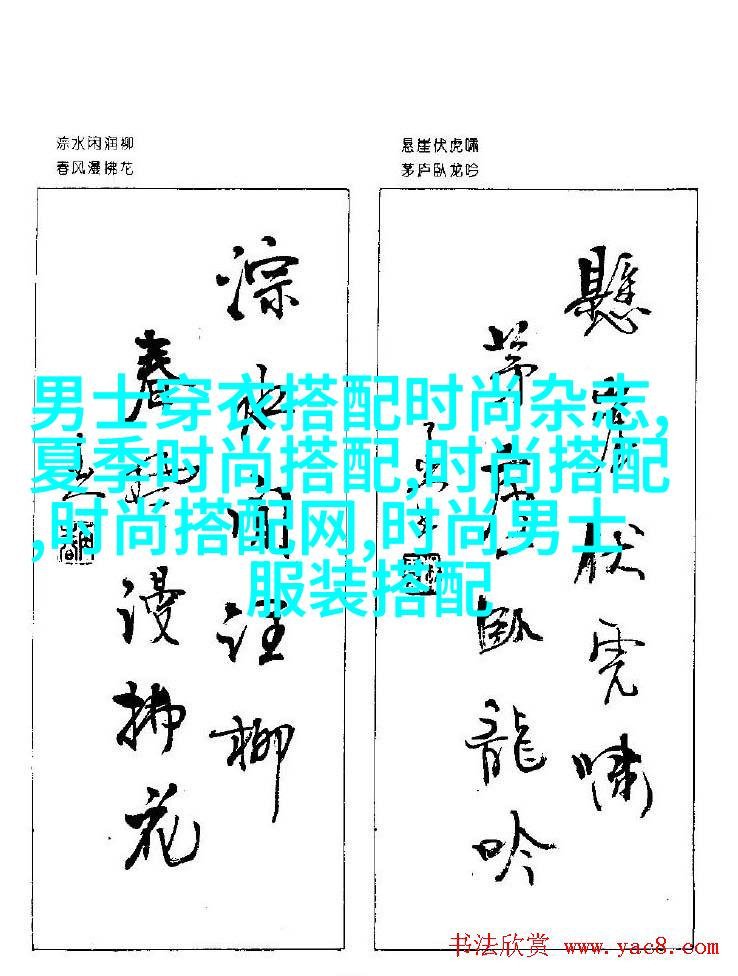 淙水闲润柳
春风漫拂花
悬崖伏虎啸
茅庐卧龙吟
懸崖伏虎嘯
茅庐臥龍吟
淙水閒润柳
春风漫拂花
男士穿衣搭配时尚杂志,
夏季时尚搭配,时尚搭配
,时尚搭配网,时尚男士
服装搭配
书法欣赏 www.yac8.com